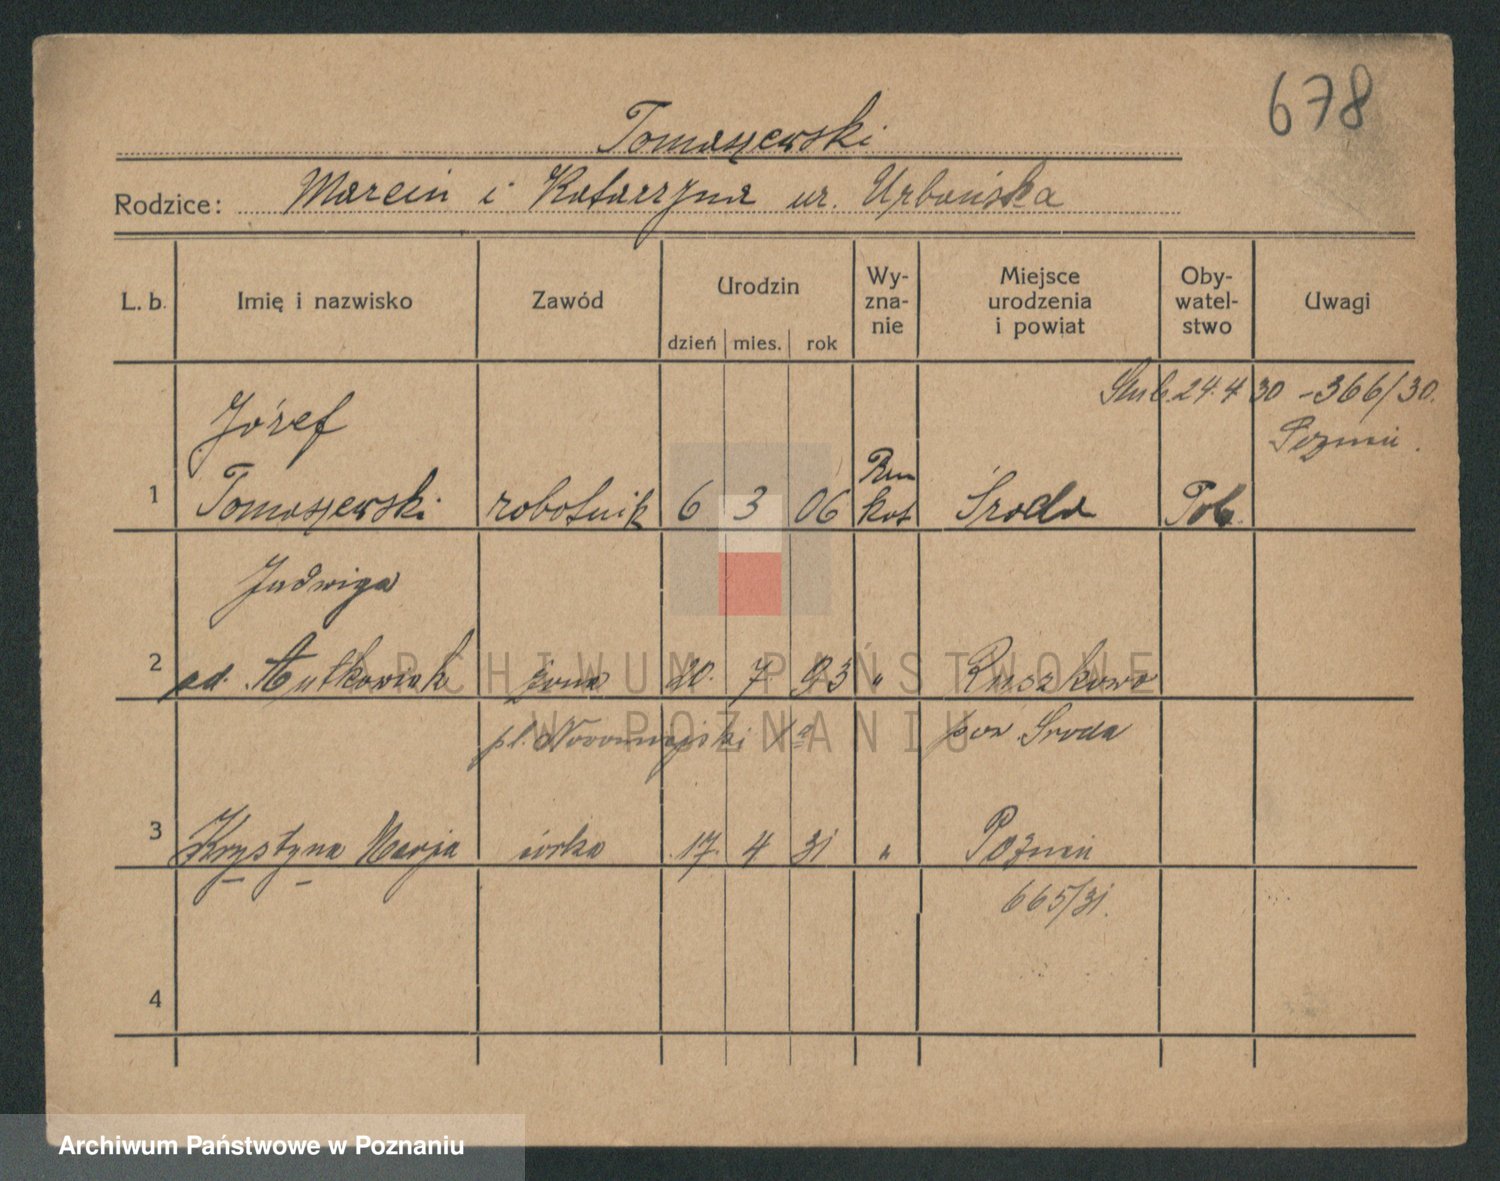 678
Tomaszewski
Rodzice: Marcin i Katarzyna ur. Urbańska
L. b. Imię i nazwisko Zawód Urodzin dzień mies. rok Wyznanie Miejsce urodzenia i powiat Obywatelstwo Uwagi
Ślub 24.4 30 - 366/30.
Poznań.
Józef
1 Tomaszewski robotnik 6 3 06 Rzm kat Środa Pol.
Jadwiga
2 żona 20. 7. 03 " Ruszkowo
pow. Środa
3 Krystyna Marja córka 17. 4 31 " Poznań
665/31.
4
ARCHIWUM PAŃSTWOWE
W POZNANIU
Archiwum Państwowe w Poznaniu